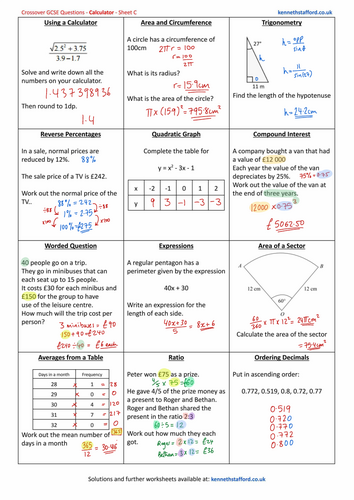 Crossover GCSE Questions - Calculator - Sheet C
kennethstafford.co.uk
Using a Calculator
√2.5² + 3.75
3.9 − 1.7
Solve and write down all the
numbers on your calculator.
1.437398936
Then round to 1dp.
1.4
Area and Circumference
A circle has a circumference of
100cm 2πr = 100
r = 100
2π
What is its radius?
r = 15.9cm
What is the area of the circle?
π x (15.9)² = 795.8cm²
Trigonometry
27°
h
11 m
h = opp
sinθ
h = 11
sin(27)
Find the length of the hypotenuse
h = 24.2cm
Reverse Percentages
In a sale, normal prices are
reduced by 12%. 88%
The sale price of a TV is £242.
Work out the normal price of the
TV..
88% = 242
÷88 1% = 2.75 ÷88
x100 100% = £275 x100
Quadratic Graph
Complete the table for
y = x² - 3x - 1
x -2 -1 0 1 2
y 9 3 -1 -3 -3
Compound Interest
A company bought a van that had
a value of £12 000
Each year the value of the van
depreciates by 25%. 75% = 0.75
Work out the value of the van at
the end of three years.
12000 x 0.75³
£5062.50
Worded Question
40 people go on a trip.
They go in minibuses that can
each seat up to 15 people.
It costs £30 for each minibus and
£150 for the group to have
use of the leisure centre.
How much will the trip cost per
person?
3 minibuses = £90
150 + 90 = £240
£240 ÷ 40 = £6 each
Expressions
A regular pentagon has a
perimeter given by the expression
40x + 30
Write an expression for the
length of each side.
40x + 30 = 8x + 6
5
Area of a Sector
A
B
12 cm
12 cm
60°
O
60 x π x 12² = 24π cm²
360
Calculate the area of the sector
= 75.4cm²
Averages from a Table
Days in a month Frequency
28 x 1 = 28
29 x 0 = 0
30 x 4 = 120
31 x 7 = 217
32 x 0 = 0
Work out the mean number of
days in a month 365 = 30.42
12
Ratio
Peter won £75 as a prize.
4/5 x 75 = £60
He gave 4/5 of the prize money as
a present to Roger and Bethan.
Roger and Bethan shared the
present in the ratio 2:3
60 ÷ 5 = 12
Work out how much they each
got. Roger = 2 x 12 = £24
Bethan = 3 x 12 = £36
Ordering Decimals
Put in ascending order:
0.772, 0.519, 0.8, 0.72, 0.77
0.519
0.720
0.770
0.772
0.800
Solutions and further worksheets available at: kennethstafford.co.uk